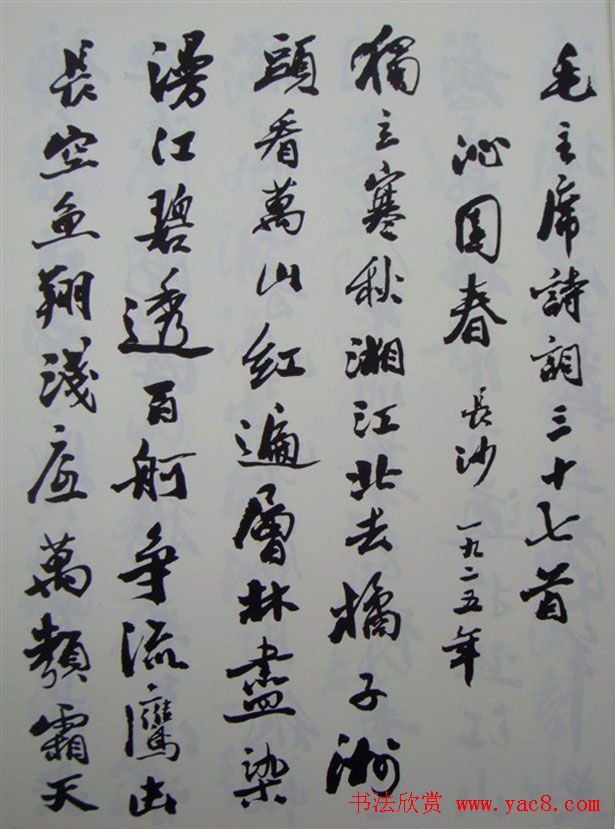 毛主席詩詞三十七首
沁園春 長沙 一九二五年
獨立寒秋湘江北去橘子洲
頭看萬山紅遍層林盡染
漫江碧透百舸争流鷹击
長空魚翔淺底萬類霜天
书法欣赏 www.yac8.com